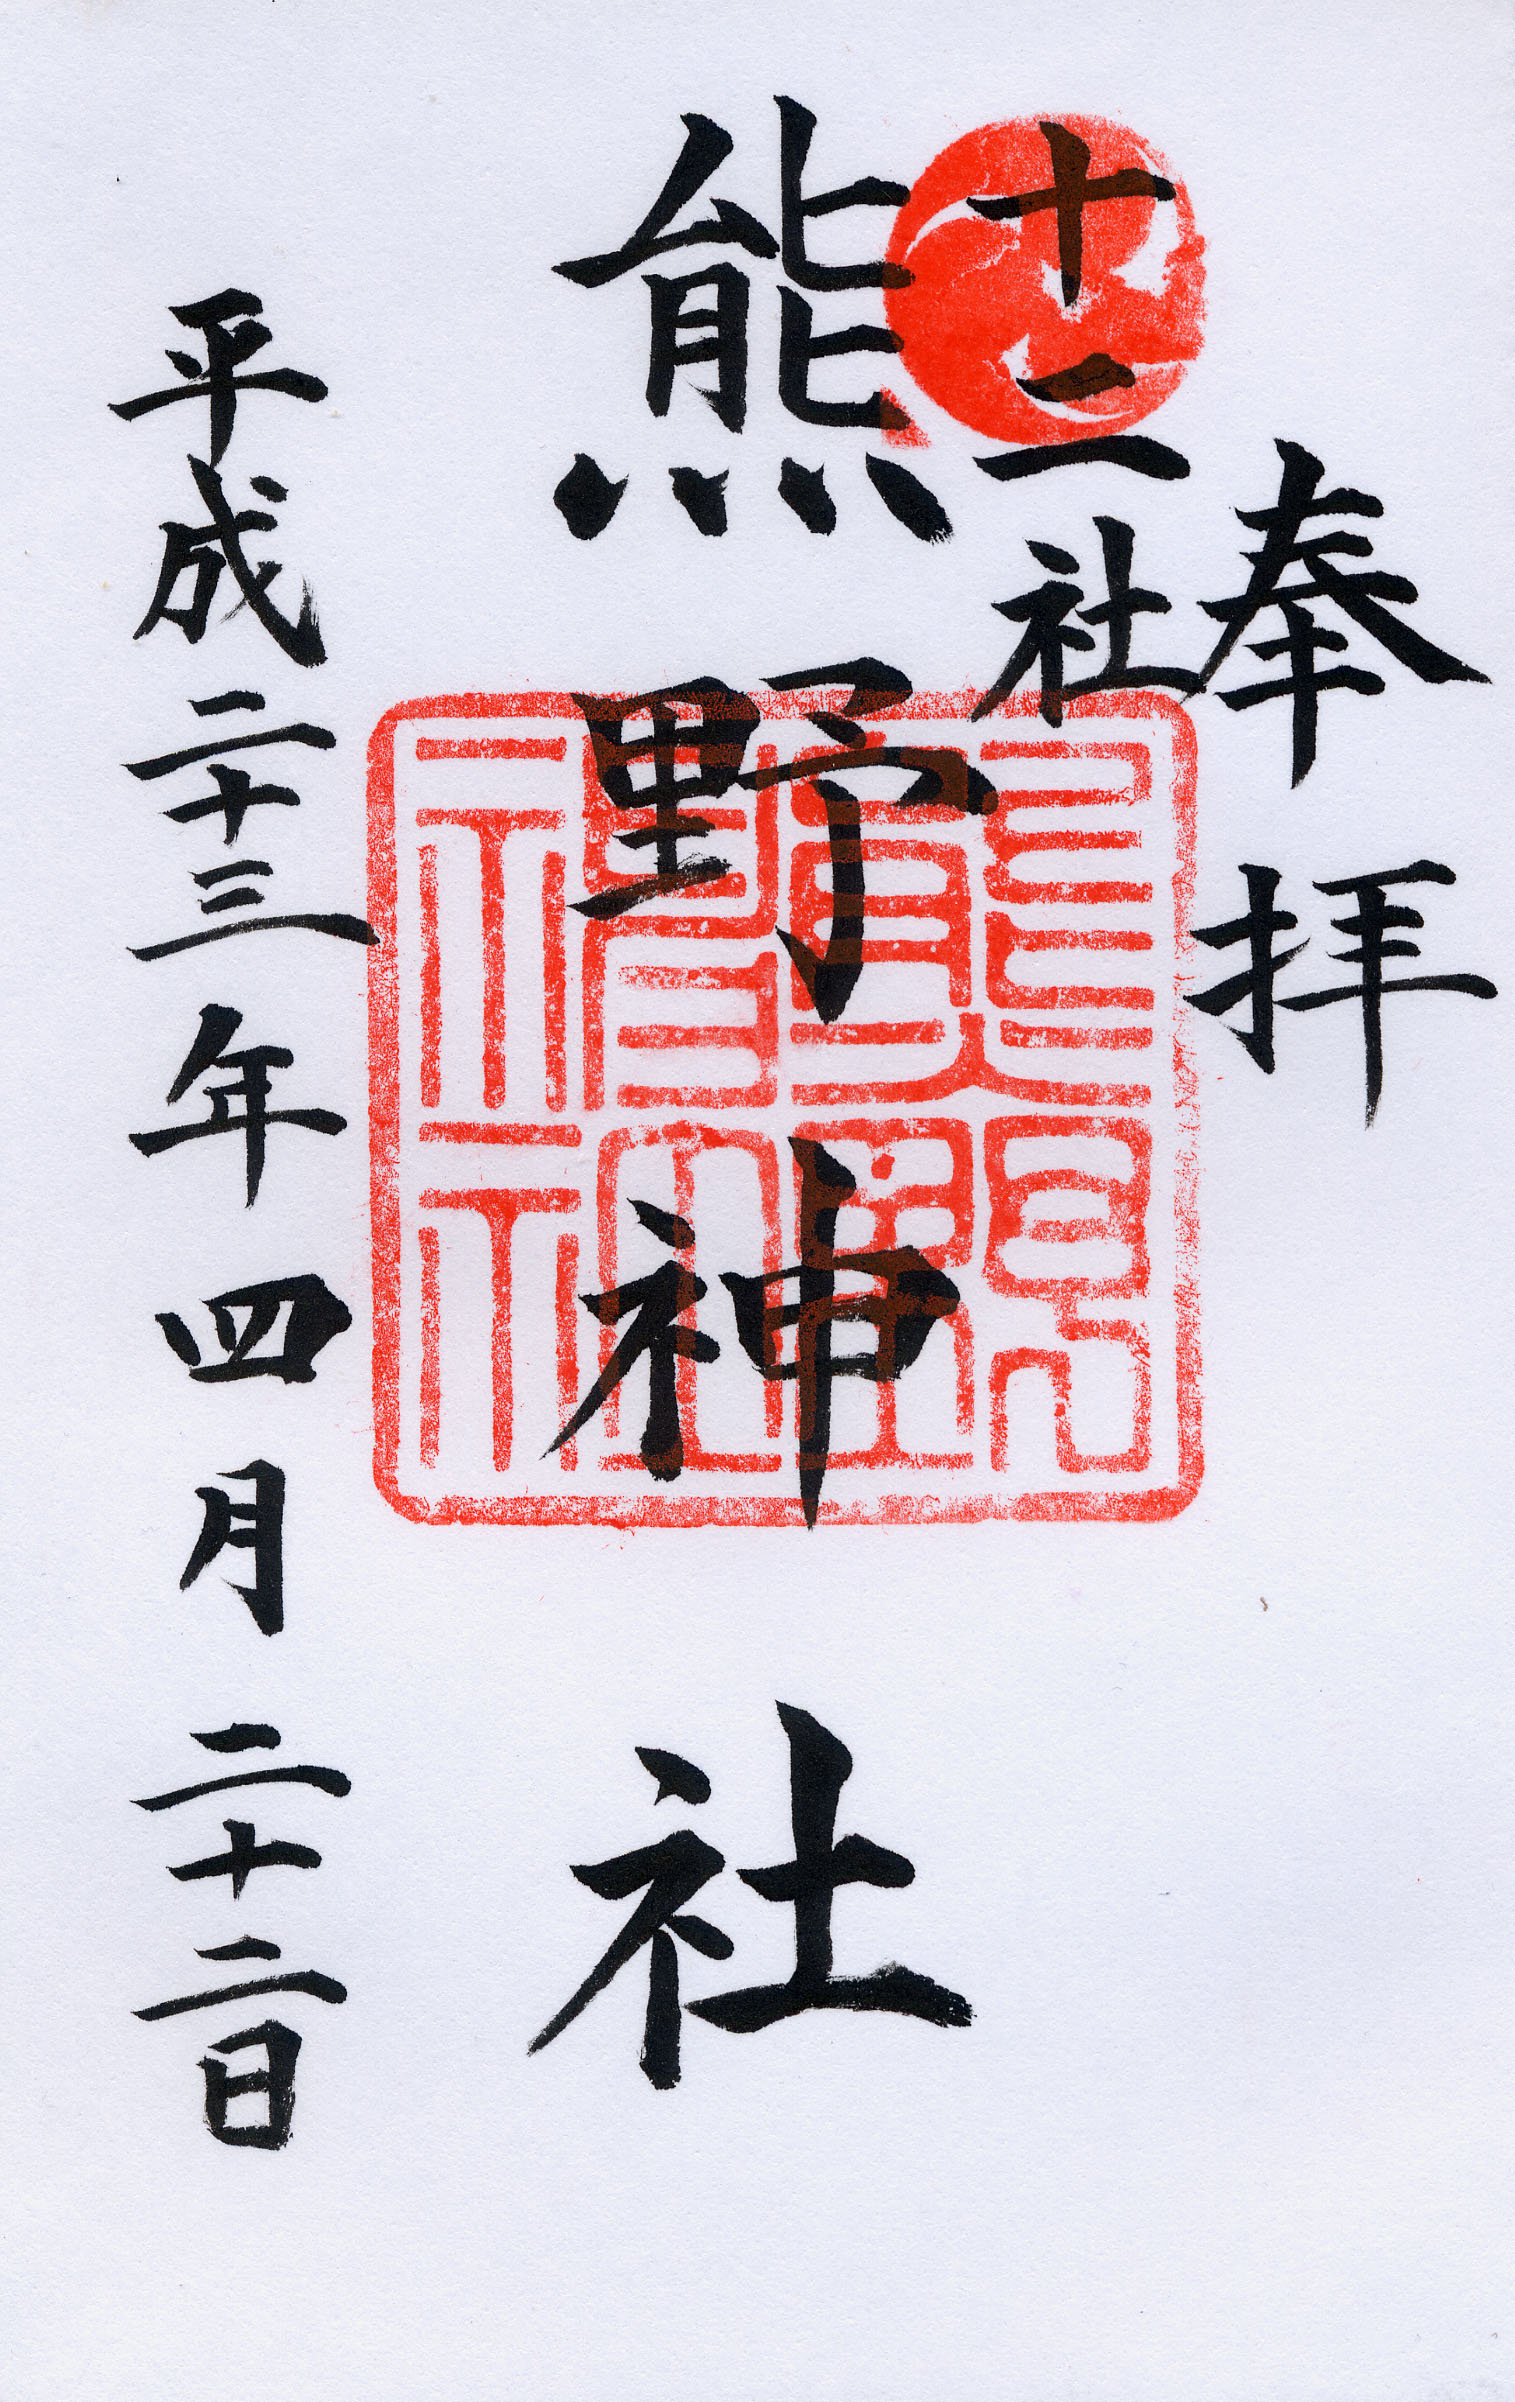 奉拝
十二社
熊野神社
平成二十三年四月二十二日